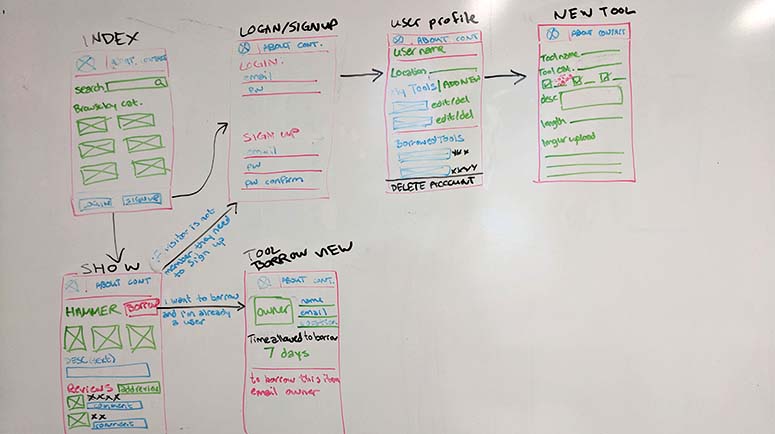 INDEX
ABOUT CONTACT
Search
Browse by cat.
LOGIN
SIGNUP
LOGIN/SIGNUP
ABOUT CONT.
LOGIN.
email
PW
SIGN UP
email
PW
PW confirm
User profile
ABOUT CONT
User name
Location
My Tools / ADD NEW
edit/del
edit/del
Borrowed Tools
xxx
xxxx
DELETE ACCCOUNT
NEW TOOL
ABOUT CONTACT
Tool name
Tool cat.
desc
length
Imgur upload
if visitor is not
member they need
to sign up
SHOW
ABOUT CONT
HAMMER
Borrow
DESC (text)
Reviews
add review
xxxx
comment
xx
comment
i want to borrow
and i'm already
a user
TOOL
BORROW VIEW
ABOUT CONT
owner
name
email
location
Time allowed to borrow
7 days
to borrow this item
email owner